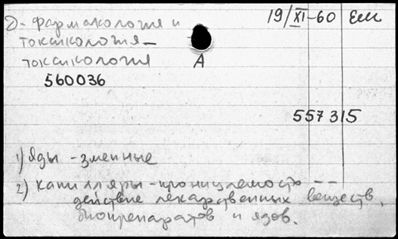 Д- фармакология и
токсикология —
токсикология
560036
19/XI-60
А
557315
1) Яды - змеиные
2) капилляры - проницаемость --
действие лекарственных веществ,
биопрепаратов и ядов.